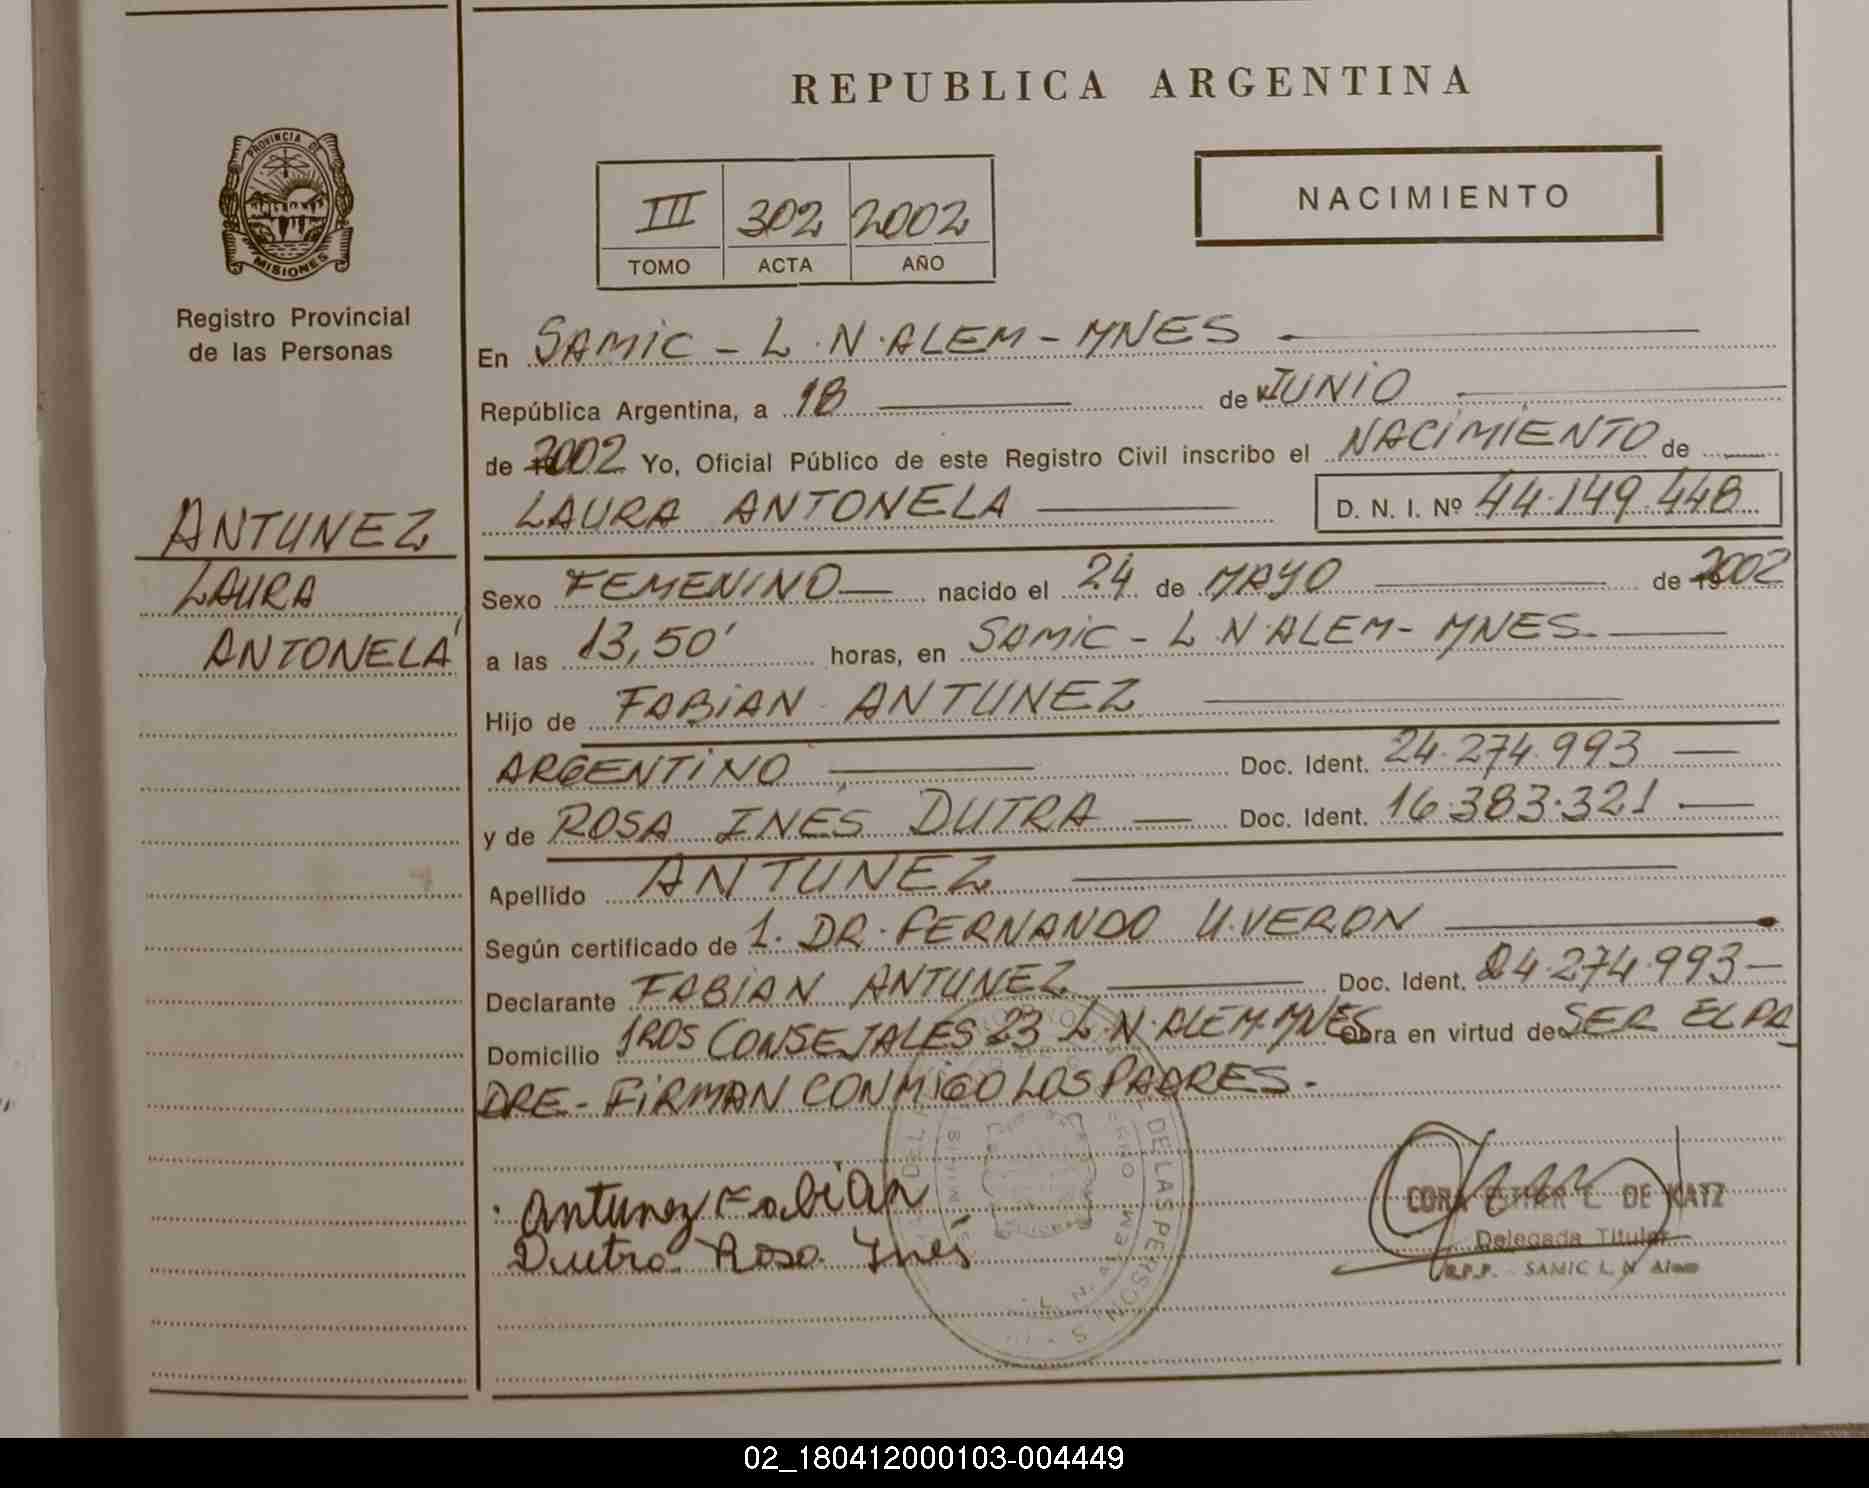 REPUBLICA ARGENTINA
PROVINCIA DE
MISIONES
Registro Provincial
de las Personas
III 302 2002
TOMO ACTA AÑO
NACIMIENTO
En SAMIC - L.N.ALEM - MNES
República Argentina, a 18 de JUNIO
de 2002 Yo, Oficial Público de este Registro Civil inscribo el NACIMIENTO de
LAURA ANTONELA D. N. I. Nº 44.149.448
ANTUNEZ
LAURA
ANTONELA
Sexo FEMENINO nacido el 24 de MAYO de 2002
a las 13,50' horas, en SAMIC - L.N.ALEM - MNES.
Hijo de FABIAN ANTUNEZ
ARGENTINO Doc. Ident. 24.274.993
y de ROSA INÉS DUTRA Doc. Ident. 16.383.321
Apellido ANTUNEZ
Según certificado de 1. DR. FERNANDO U. VERON
Declarante FABIAN ANTUNEZ Doc. Ident. 24.274.993
Domicilio 1ROS CONSEJALES 23 L.N.ALEM.MNES Obra en virtud de SER EL PA
DRE - FIRMAN CONMIGO LOS PADRES.
Antunez Fabian
Dutra Rosa Inés
DE LAS PERSONAS
L. N. ALEM
DE KATZ
Delegada Titular
R.P.P. - SAMIC L. N. Alem
02_180412000103-004449